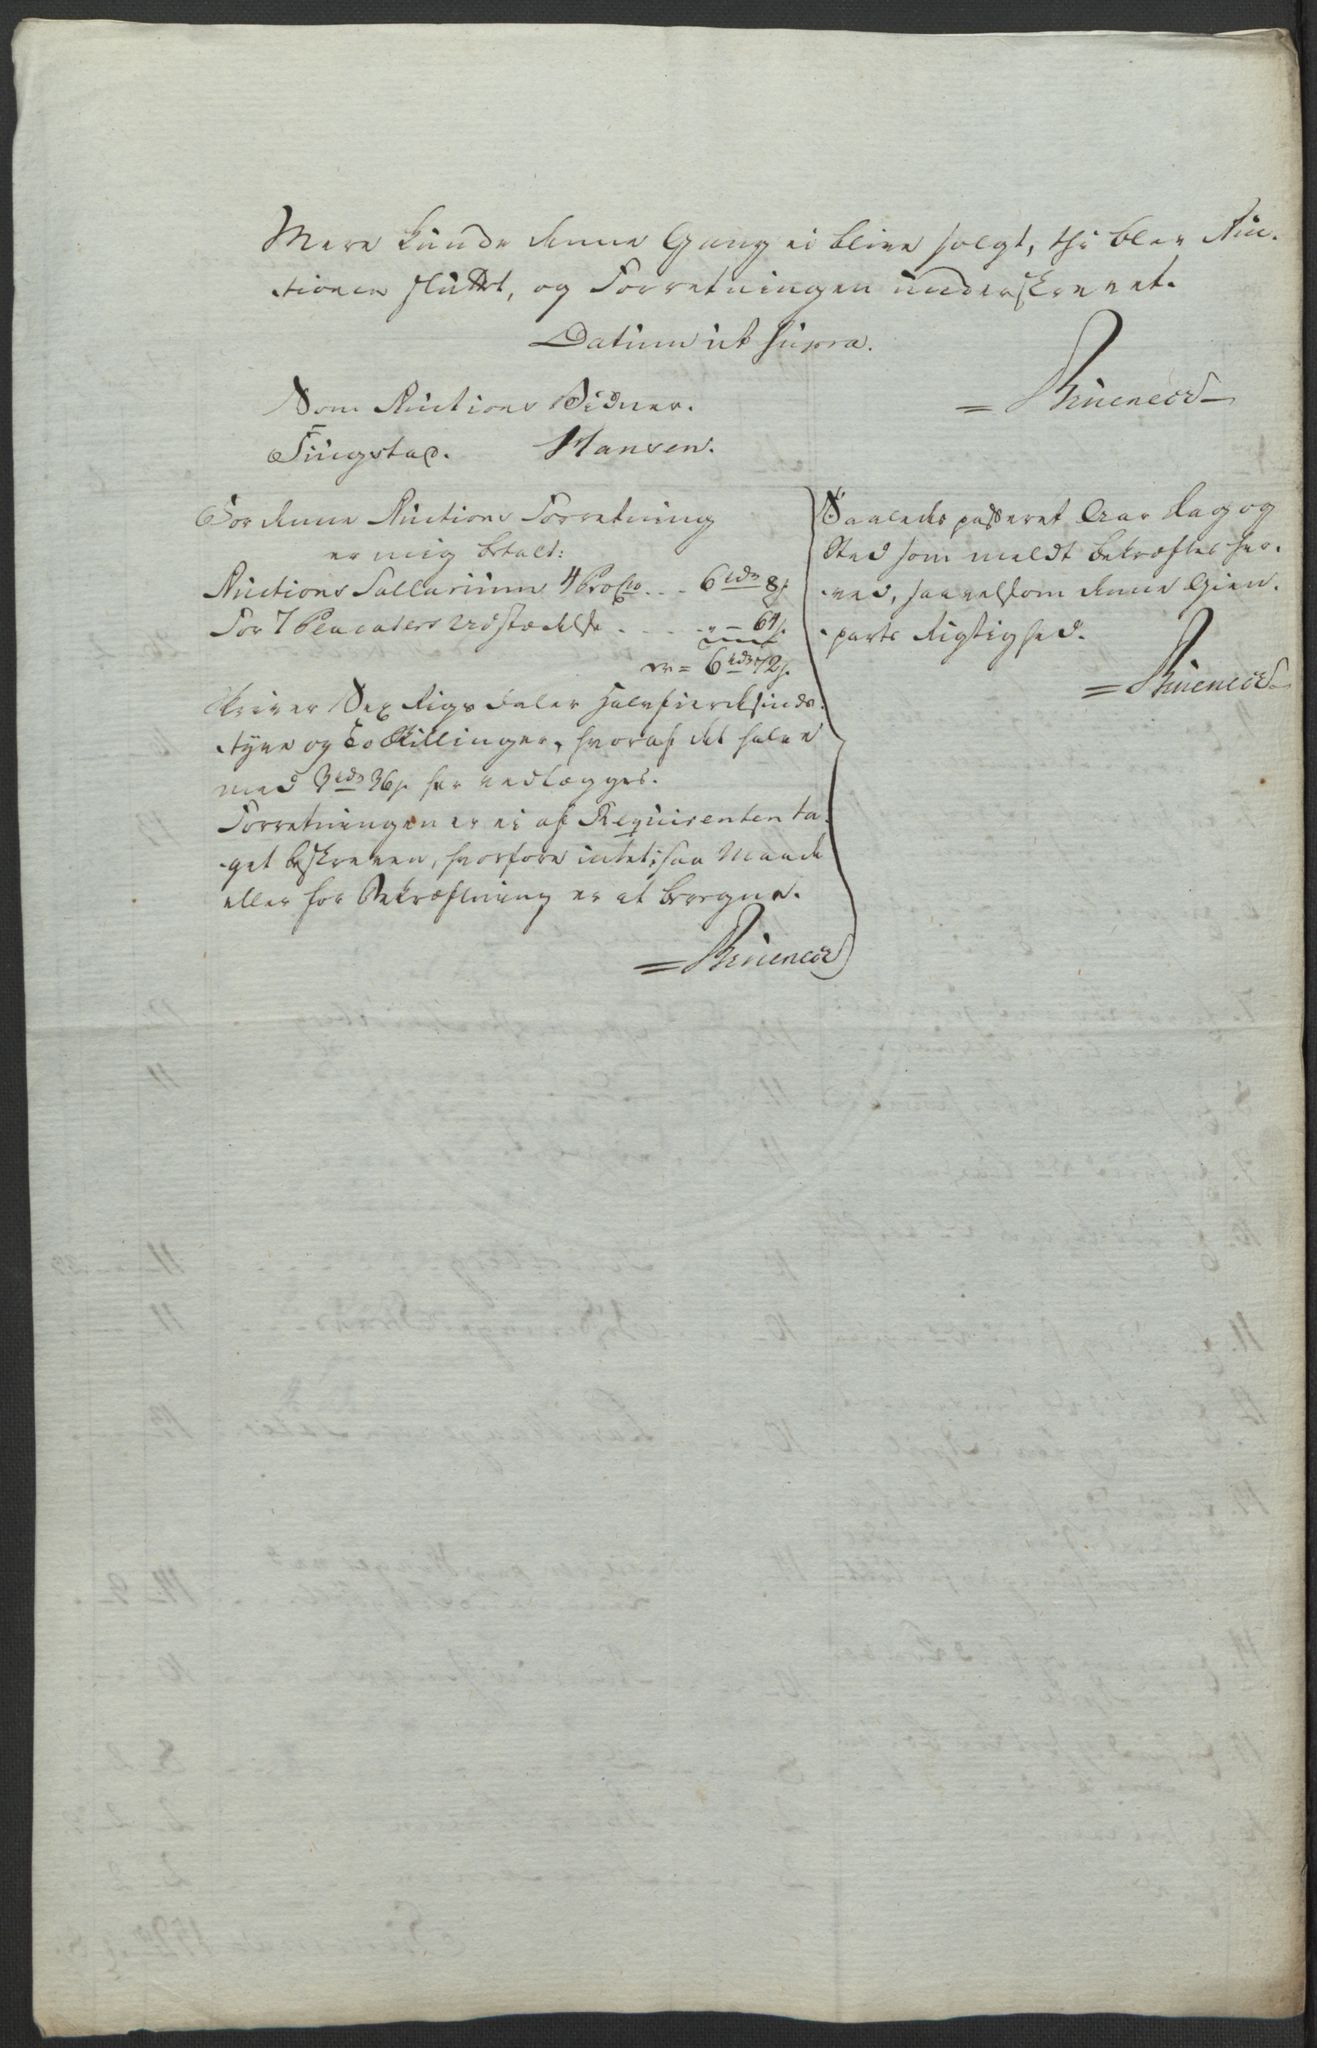 Mere kunde denne Gang ei blive solgt, thi blev Auc-
tionen sluttet, og Forretningen underskrevet.
Datum ut supra.
= Bruenech
Som Auctions Vidner.
Tingstad. Hansen.
For denne Auctions Forretning
er mig betalt:
Auctions Sallarium 4 Procto .... 6 rdr 8 s.
For 7 Placaters Udstædelse ..... " - 64 s.
er = 6 rdr 72 s.
skriver Sex Rigsdaler Halvfierdesinds-
tyve og To Skillinger, hvoraf det halve
med 3 rdr 36 s. her vedlægges.
Forretningen er ei af Requirenten ta-
get beskreven, hvorfore intet i saa Maade
eller for Bekræftning er at beregne.
= Bruenech
Saaledes passeret Aar Dag og
Sted som meldt bekræftes her-
ved, saavelsom denne Gien-
parts Rigtighed.
= Bruenech